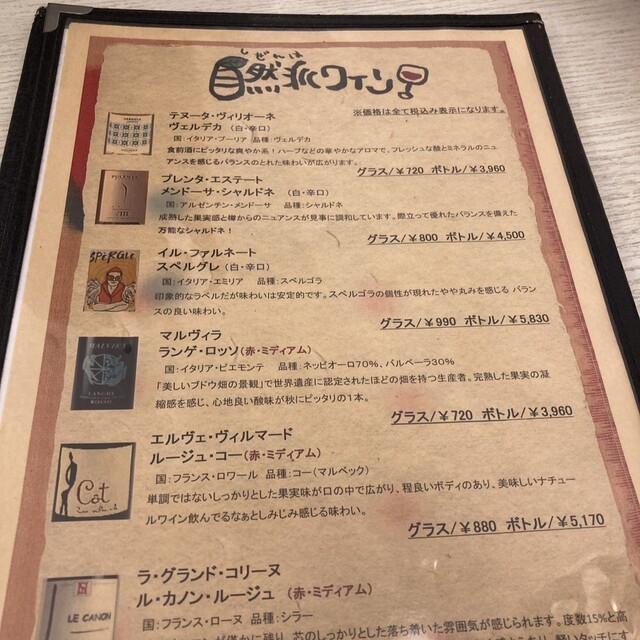 しぜんは
自然派ワイン!
※価格は全て税込み表示になります。
テヌータ・ヴィリオーネ
ヴェルデカ (白・辛口)
国:イタリア・プーリア 品種:ヴェルデカ
食前酒にピッタリな爽やか系!ハーブなどの華やかなアロマで、フレッシュな酸とミネラルのニュ
アンスを感じるバランスのとれた味わいが広がります。
グラス/¥720 ボトル/¥3,960
プレンタ・エステート
メンドーサ・シャルドネ (白・辛口)
国:アルゼンチン・メンドーサ 品種:シャルドネ
成熟した果実感と樽からのニュアンスが見事に調和しています。際立って優れたバランスを備えた
万能なシャルドネ!
グラス/¥800 ボトル/¥4,500
SPERGLE
イル・ファルネート
スペルグレ (白・辛口)
国:イタリア・エミリア 品種:スペルゴラ
印象的なラベルだが味わいは安定的です。スペルゴラの個性が現れたやや丸みを感じる バラン
スの良い味わい。
グラス/¥990 ボトル/¥5,830
マルヴィラ
ランゲ・ロッソ(赤・ミディアム)
国:イタリア・ピエモンテ 品種:ネッビオーロ70%、バルベーラ30%
「美しいブドウ畑の景観」で世界遺産に認定されたほどの畑を持つ生産者。完熟した果実の凝
縮感を感じ、心地良い酸味が秋にピッタリの1本。
グラス/¥720 ボトル/¥3,960
Cot
エルヴェ・ヴィルマード
ルージュ・コー(赤・ミディアム)
国:フランス・ロワール 品種:コー(マルベック)
単調ではないしっかりとした果実味が口の中で広がり、程良いボディのあり、美味しいナチュー
ルワイン飲んでるなぁとしみじみ感じる味わい。
グラス/¥880 ボトル/¥5,170
LE CANON
ラ・グランド・コリーヌ
ル・カノン・ルージュ (赤・ミディアム)
国:フランス・ローヌ 品種:シラー
が僅かに残り、芯のしっかりとした落ち着いた雰囲気が感じられます。度数15%と高